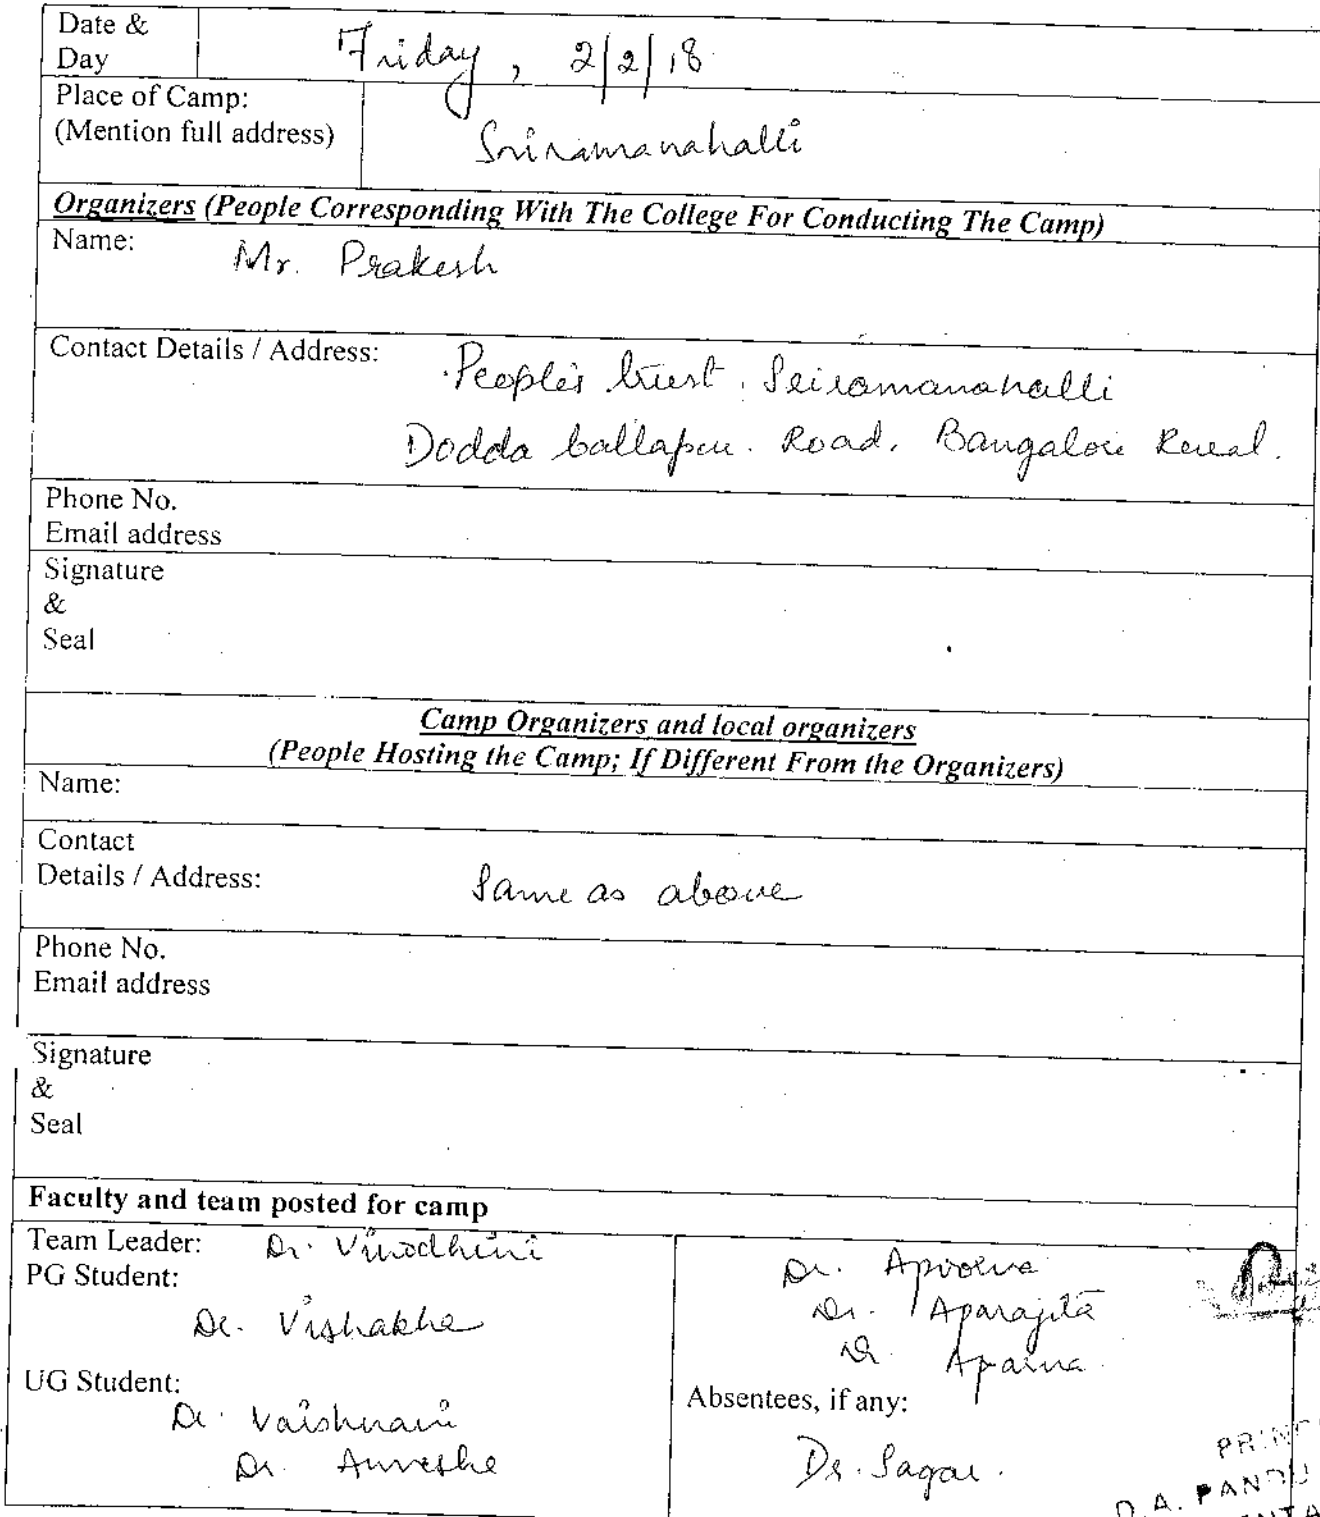 Date &
Day
Friday, 2/2/18
Place of Camp:
(Mention full address)
Sriramanahalli
Organizers (People Corresponding With The College For Conducting The Camp)
Name: Mr. Prakesh
Contact Details / Address: People's trust. Sriramanahalli
Dodda ballapur. Road. Bangalore Rural.
Phone No.
Email address
Signature
&
Seal
Camp Organizers and local organizers
(People Hosting the Camp; If Different From the Organizers)
Name:
Contact
Details / Address: Same as above
Phone No.
Email address
Signature
&
Seal
Faculty and team posted for camp
Team Leader: Dr. Vinodhini
PG Student:
Dr. Vishakha
UG Student:
Dr. Vaishnavi
Dr. Anvesha
Dr. Apoorva
Dr. Aparajita
Dr. Aparna
Absentees, if any:
Dr. Sagar.
PRINC
D.A. PANDU